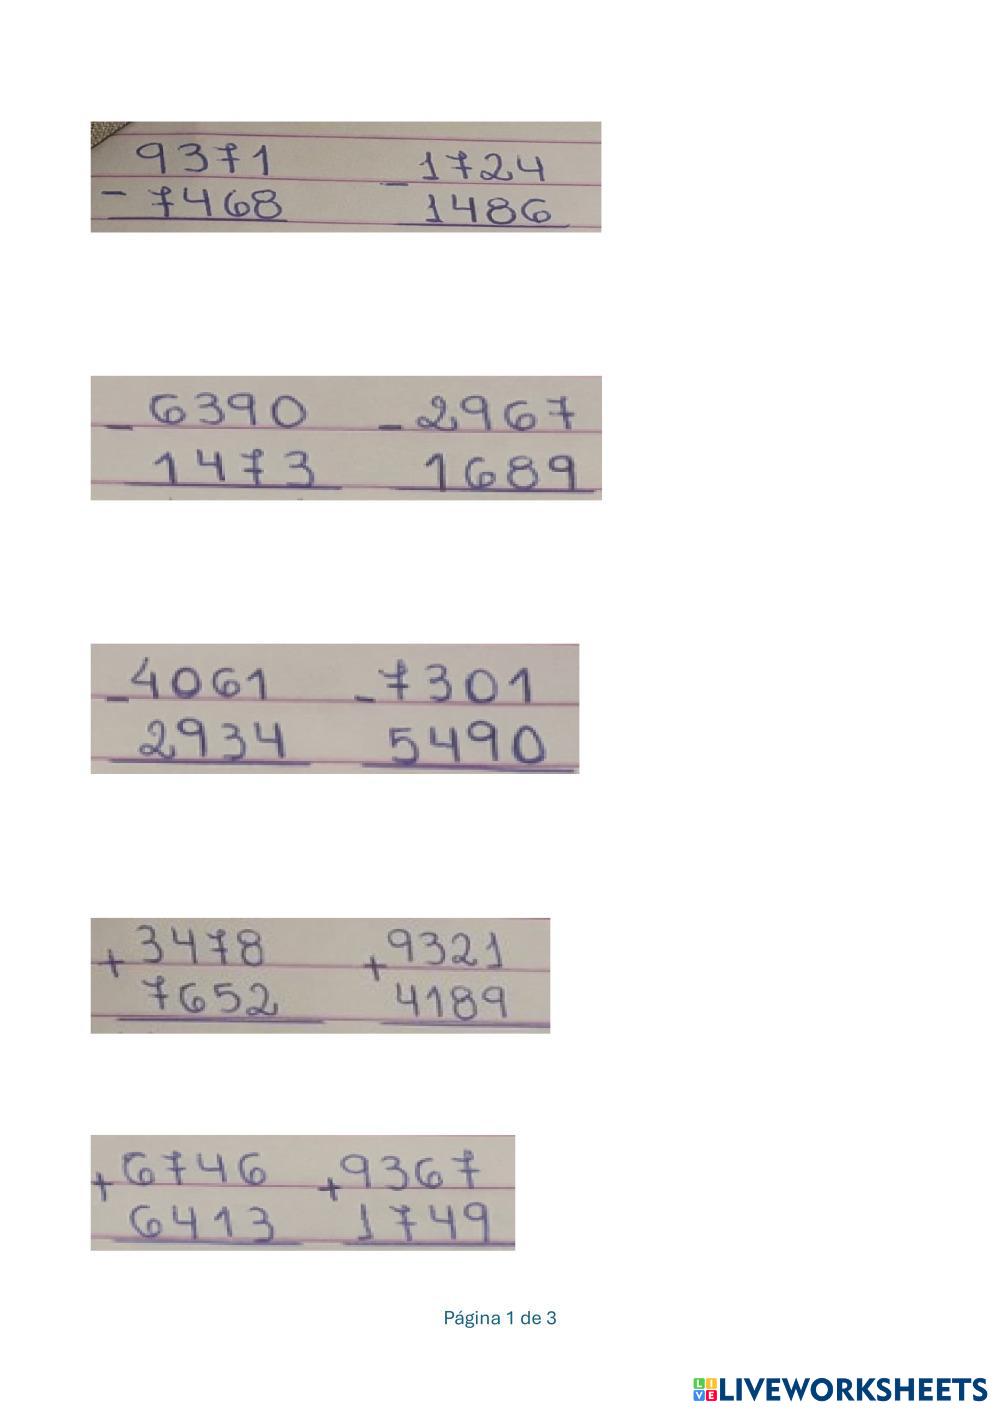 9371 1724
- 7468 - 1486
6390 2967
- 1473 - 1689
4061 7301
- 2934 - 5490
3478 9321
+ 7652 + 4189
6746 9367
+ 6413 + 1749
Página 1 de 3
LIVEWORKSHEETS